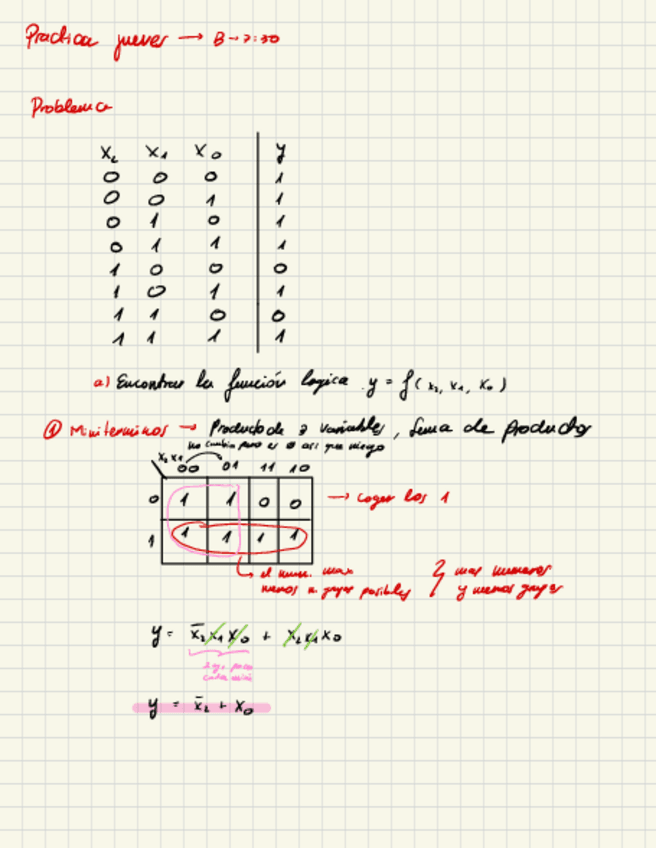 Practica jueves → B → 7:30
Problema
x₂ x₁ x₀ y
0 0 0 1
0 0 1 1
0 1 0 1
0 1 1 1
1 0 0 0
1 0 1 1
1 1 0 0
1 1 1 1
a) Encontrar la función logica y = f(x₂, x₁, x₀)
① Miniterminos → Producto de 3 variables, Suma de productos
no cambia pero es 0 asi que niego
x₂ x₁ 00 01 11 10
0 1 1 0 0 → coger los 1
1 1 1 1 1
el num. max
menos n. grupos posibles } mas numeros y menos grupos
y = x̄₂x₁x₀ + x₂x₁x₀
y = x̄₂ + x₀